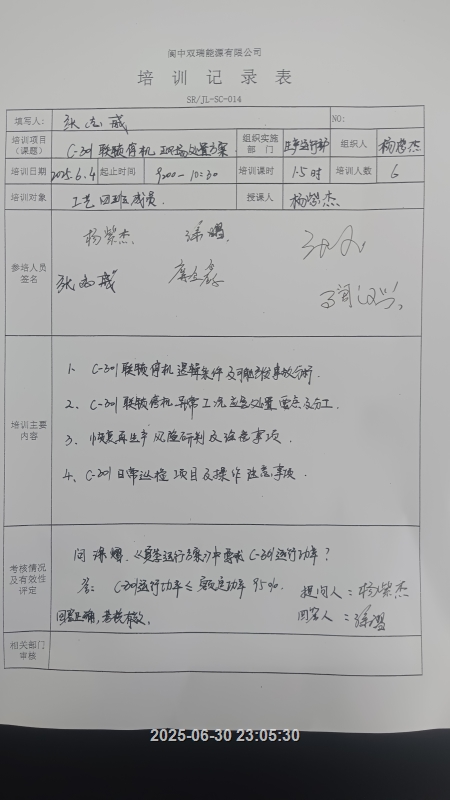 阆中双瑞能源有限公司
培训记录表
SR/JL-SC-014
填写人: 张志威 NO:
培训项目(课题) C-301联锁停机现场处置方案 组织实施部门 生产运行部 组织人 杨紫杰
培训日期 2025.6.4 起止时间 9:00-10:30 培训课时 1.5时 培训人数 6
培训对象 工艺四班成员. 授课人 杨紫杰
参培人员签名
杨紫杰
张志威
培训主要内容
1、C-301联锁停机逻辑条件及可能导致事故分析.
2、C-301联锁停机异常工况应急处置要点及分工.
3、恢复再生产风险研判及注意事项.
4、C-301日常巡检项目及操作注意事项.
考核情况及有效性评定
问 《夏季运行方案》中要求C-301运行功率?
答: C-301运行功率≤额定功率95%. 提问人:杨紫杰
回答正确,考核有效. 回答人:
相关部门审核
2025-06-30 23:05:30